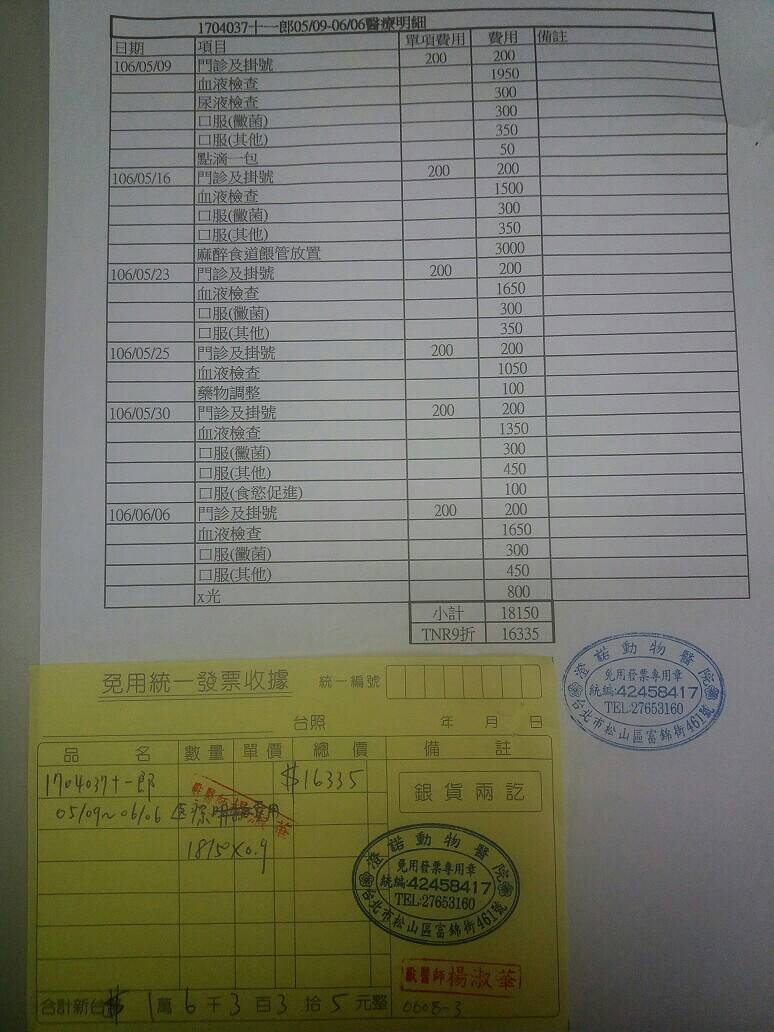 1704037十一郎05/09-06/06醫療明細
日期 項目 單項費用 費用 備註
106/05/09 門診及掛號 200 200
血液檢查 1950
尿液檢查 300
口服(黴菌) 300
口服(其他) 350
點滴一包 50
106/05/16 門診及掛號 200 200
血液檢查 1500
口服(黴菌) 300
口服(其他) 350
麻醉食道餵管放置 3000
106/05/23 門診及掛號 200 200
血液檢查 1650
口服(黴菌) 300
口服(其他) 350
106/05/25 門診及掛號 200 200
血液檢查 1050
藥物調整 100
106/05/30 門診及掛號 200 200
血液檢查 1350
口服(黴菌) 300
口服(其他) 450
口服(食慾促進) 100
106/06/06 門診及掛號 200 200
血液檢查 1650
口服(黴菌) 300
口服(其他) 450
x光 800
小計 18150
TNR9折 16335
澄諾動物醫院
免用發票專用章
統編:42458417
TEL:27653160
台北市松山區富錦街461號
免用統一發票收據 統一編號
台照 年 月 日
品名 數量 單價 總價 備註
1704037十一郎 $16335
銀貨兩訖
05/09~06/06 医療 費用
獸醫師楊淑華
18150×0.9
澄諾動物醫院
免用發票專用章
統編:42458417
TEL:27653160
台北市松山區富錦街461號
獸醫師楊淑華
合計新台幣 1萬6千3百3拾5元整
0608-3